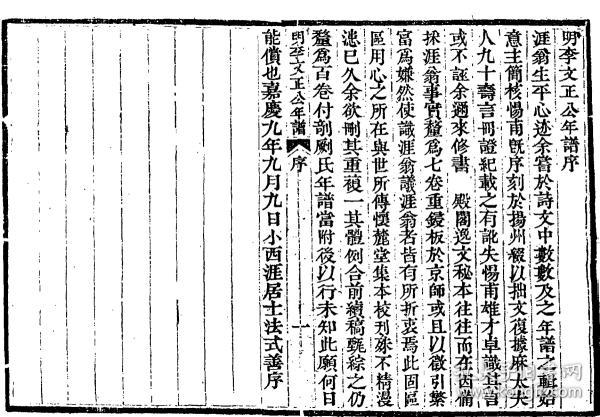 明李文正公年譜序
涯翁生平心迹余嘗於詩文中數數及之年譜之輯始
意主簡核惕甫旣序刻於揚州綴以拙文復據麻大夫
人九十壽言冊證紀載之有訛失惕甫雄才卓識其言
或不誣余邇來修書 殿閣逸文秘本往往而在因備
採涯翁事實釐爲七卷重鋟板於京師或且以徵引繁
富爲嫌然使識涯翁議涯翁者皆有所折衷焉此固區
區用心之所在與世所傳懷麓堂集本校刊殊不精漫
漶已久余欲刪其重複一其體例合前續稿甄綜之仍
釐爲百卷付剞劂氏年譜當附後以行未知此願何日
明李文正公年譜 序 一
能償也嘉慶九年九月九日小西涯居士法式善序